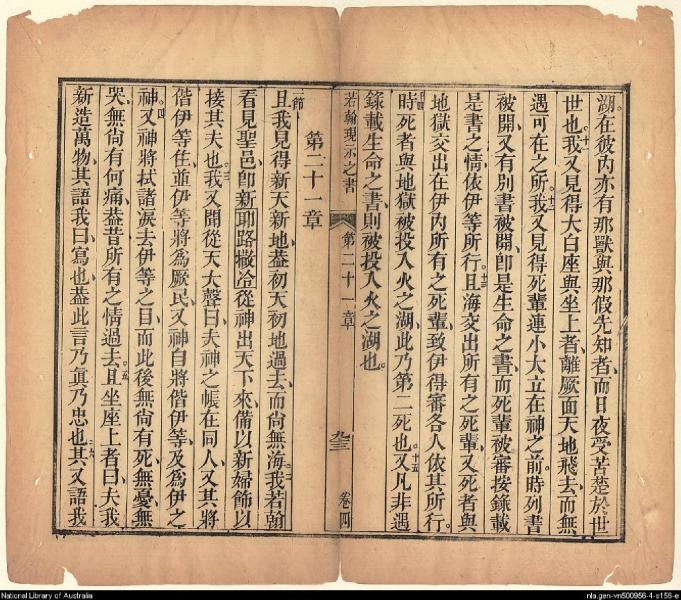 湖。在彼內亦有那獸與那假先知者、而日夜受苦楚於世
世也。十一我又見得大白座與坐上者、離厥面天地飛去、而無
遇可在之所。十二我又見得死輩連小大立在神之前。時列書
被開、又有別書被開、即是生命之書、而死輩被審按錄載
是書之情、依伊等所行。十三且海交出所有之死輩、又死者與
地獄交出在伊內所有之死輩、致伊得審各人依其所行。
十四時死者與地獄被投入火之湖、此乃第二死也。十五又凡非遇
錄載生命之書、則被投入火之湖也。
若翰現示之書 第二十一章 卷四
第二十一章
一節且我見得新天新地、蓋初天初地過去、而尚無海。二我若翰
看見聖邑、即新耶路撒冷從神出天下來、備以新婦飾以
接其夫也。三我又聞從天大聲曰、夫神之帳在同人、又其將
偕伊等住、並伊等將為厥民、又神自將偕伊等、及為伊之
神。四又神將拭諸淚去伊等之目、而此後無尚有死、無憂、無
哭、無尚有何痛、蓋昔所有之情過去。五且坐座上者曰、夫我
新造萬物、其語我曰、寫也、蓋此言乃真乃忠也。六其又語我
National Library of Australia
nla.gen-vn500956-4-s156-e